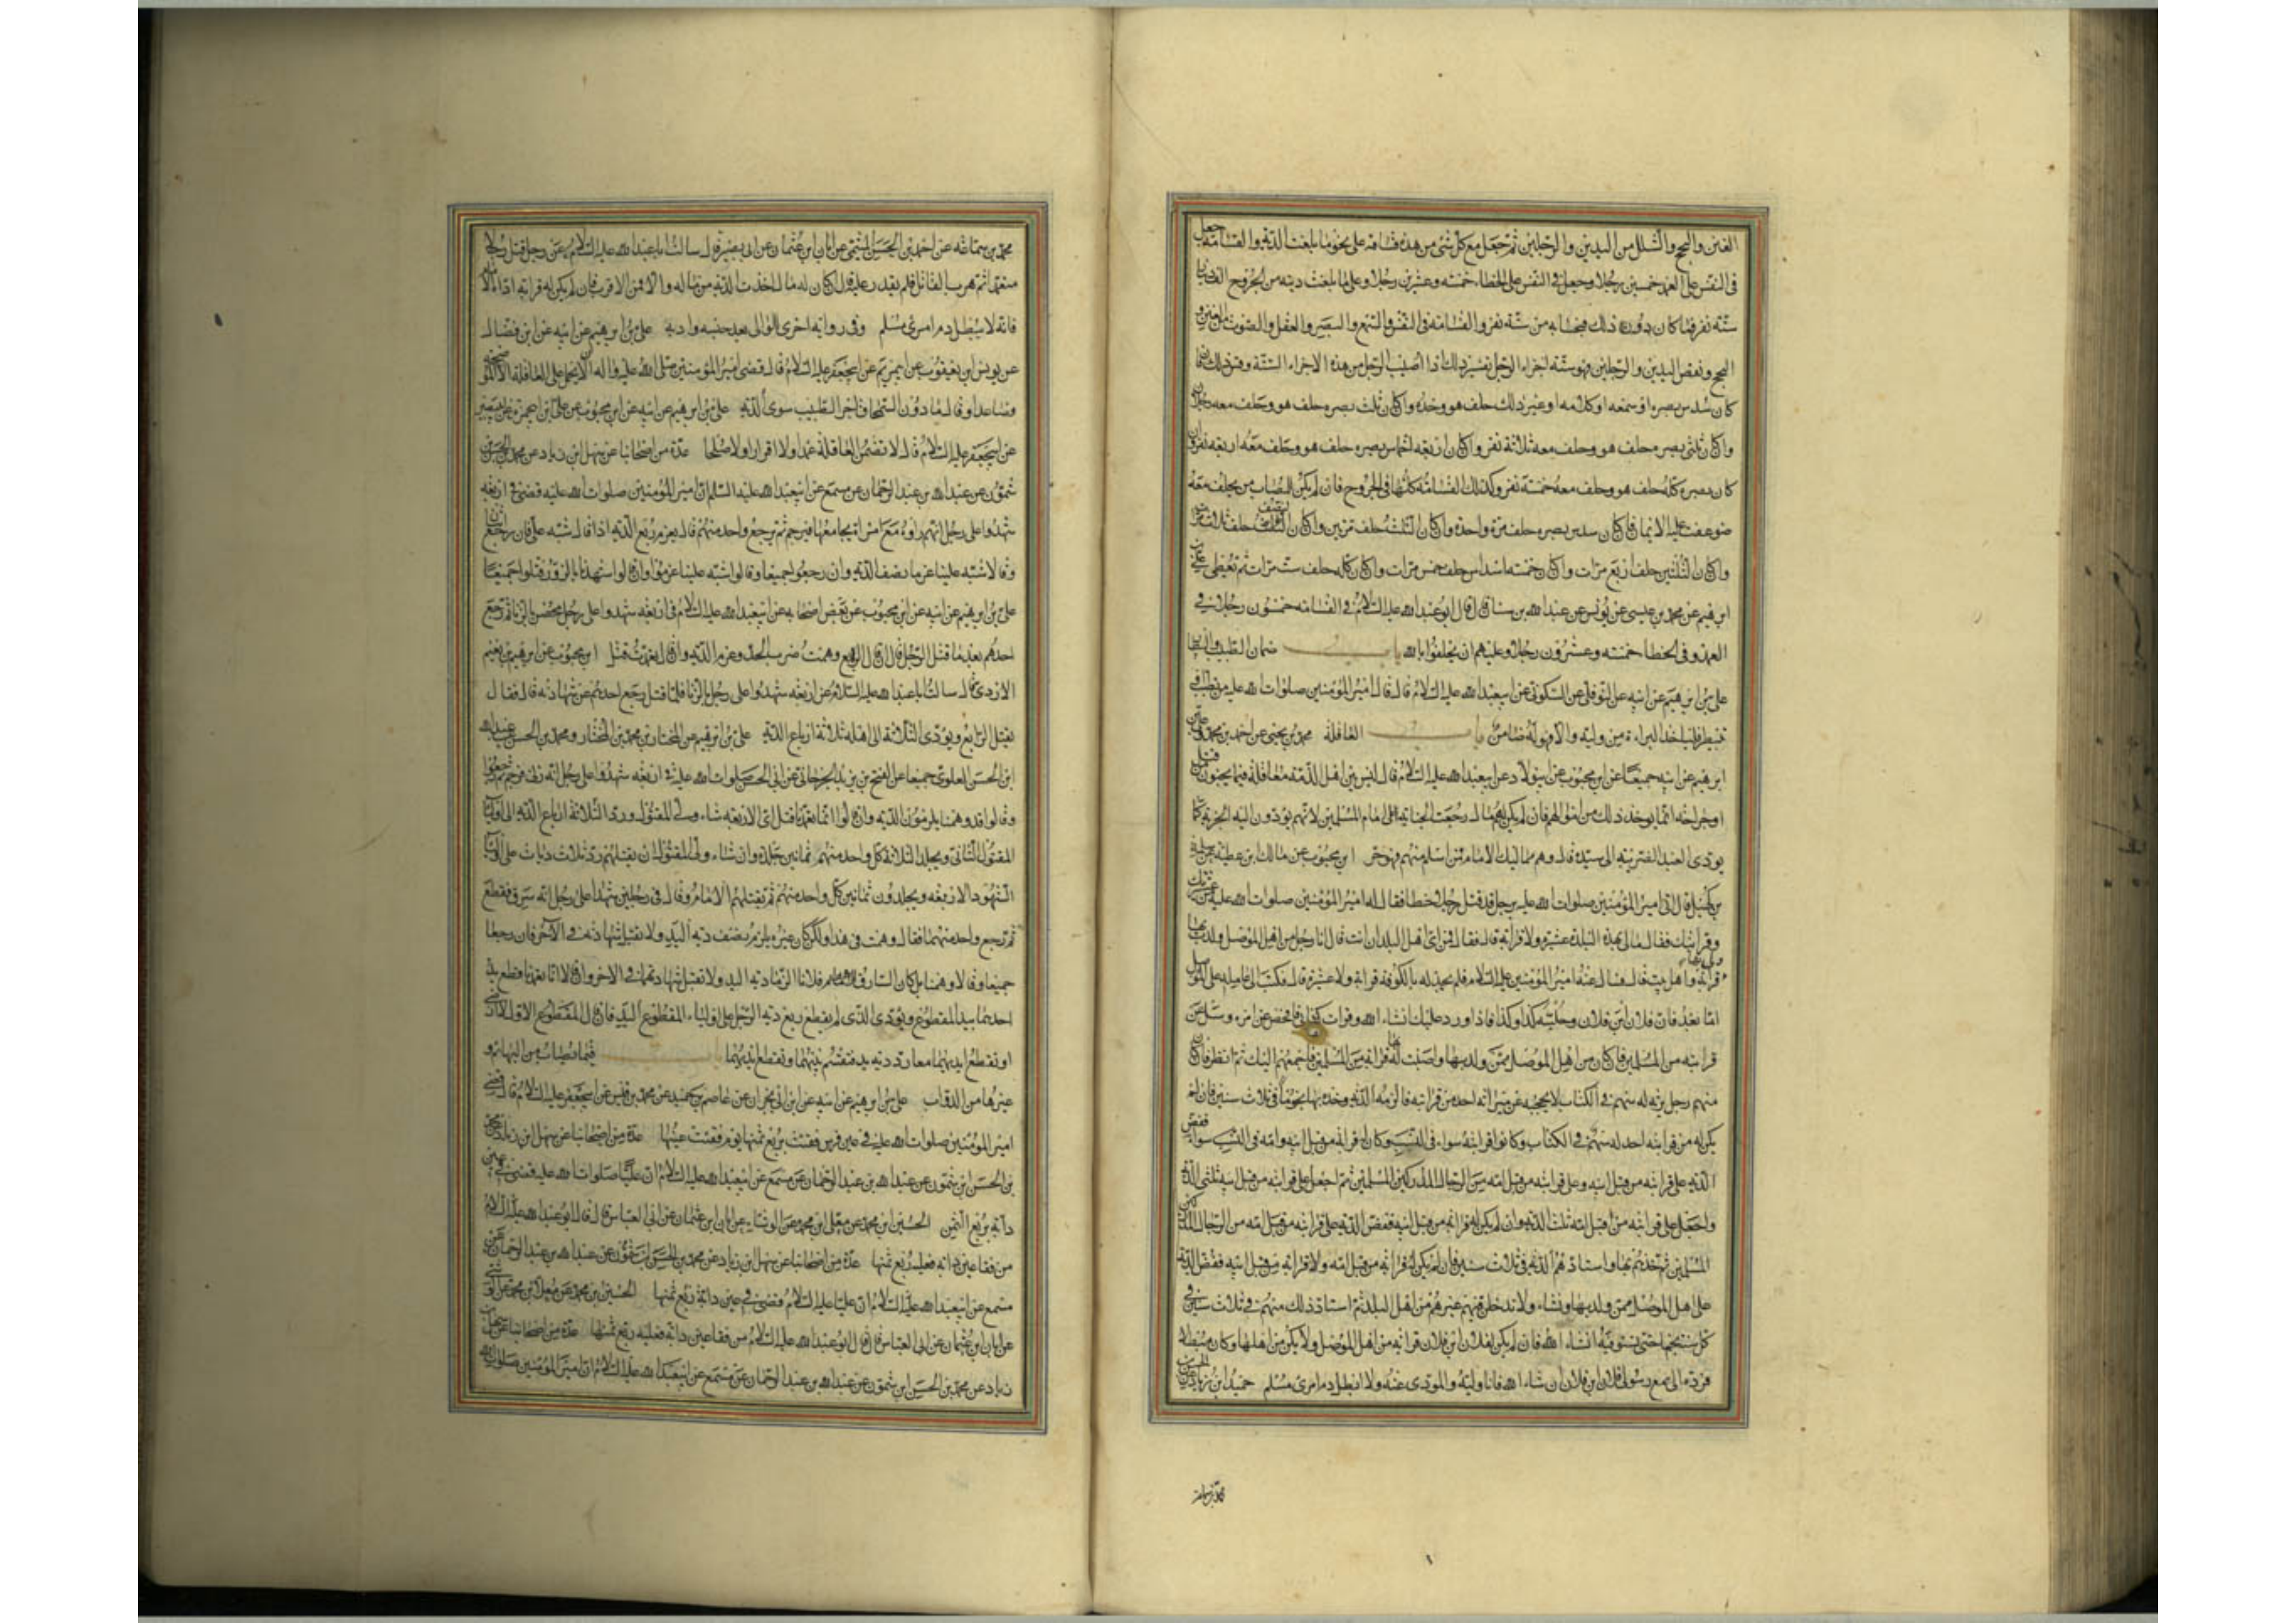 الغنن والبحح والشلل من اليدين والرجلين ثم جعل مع كل شئ من هذه قسامة على نحو ما بلغت الدية والقسامة جعل
فى النفس على العمد خمسين رجلا وجعل فى النفس على الخطاء خمسة وعشرين رجلا وعلى ما بلغت ديته من الجروح
ستة نفر فما كان دون ذلك فبحسابه من ستة نفر والقسامة فى النفس والسمع والبصر والعقل والصوت من الغنن و
البحح ونقص اليدين والرجلين فهو ستة اجزاء الرجل تفسير ذلك اذا اصيب الرجل من هذه الاجزاء الستة وقيس ذلك فان
كان سدس بصره او سمعه او كلامه او غير ذلك حلف هو وحده وان كان ثلث بصره حلف هو وحلف معه رجل
وان كان ثلثى بصره حلف هو وحلف معه ثلاثة نفر وان كان اربعة اخماس بصره حلف هو وحلف معه اربعة نفر وان
كان بصره كله حلف هو وحلف معه خمسة نفر وكذلك القسامة كلها فى الجروح فان لم يكن للمصاب من يحلف معه
ضوعفت عليه الايمان فان كان سدس بصره حلف مرة واحدة وان كان الثلث حلف مرتين وان كان النصف حلف ثلاث مرات
وان كان الثلثين حلف اربع مرات وان كان خمسة اسداس حلف خمس مرات وان كان كله حلف ست مرات ثم يعطى على بن
ابرهيم عن محمد بن عيسى عن يونس عن عبد الله بن سنان قال قال ابو عبد الله عليه السلام فى القسامة خمسون رجلا فى
العمد وفى الخطا خمسة وعشرون رجلا وعليهم ان يحلفوا بالله باب ضمان الطبيب والبيطار
على بن ابرهيم عن ابيه عن النوفلى عن السكونى عن ابى عبد الله عليه السلام قال قال امير المؤمنين صلوات الله عليه من تطبب او
تبيطر فلياخذ البراءة من وليه والا فهو له ضامن باب العاقلة محمد بن يحيى عن احمد بن محمد وعلى بن
ابرهيم عن ابيه جميعا عن ابن محبوب عن ابى ولاد عن ابى عبد الله عليه السلام قال ليس بين اهل الذمة معاقلة فيما يجنون من قتل
او جراحة انما يوخذ ذلك من اموالهم فان لم يكن لهم مال رجعت الجناية على امام المسلمين لانهم يؤدون اليه الجزية كما
يودى العبد الضريبة الى سيده قال وهم مماليك الامام فمن اسلم منهم فهو حر ابن محبوب عن مالك ابن عطية عن سلمة
بن كهيل قال اتى امير المؤمنين صلوات الله عليه برجل قد قتل رجلا خطا فقال له امير المؤمنين صلوات الله عليه من عشيرتك
وقرابتك فقال ما لى بهذه البلدة عشيرة ولا قرابة قال فقال فمن اى اهل البلدان انت قال انا رجل من اهل الموصل ولدت بها
ولى بها قرابة واهل بيت قال فسال عنه امير المؤمنين عليه السلام فلم يجد له بالكوفة قرابة ولا عشيرة قال فكتب الى عامله على الموصل
اما بعد فان فلان ابن فلان وحليته كذا وكذا فاذا ورد عليك انشاء الله وقرات كتابى فافحص عن امره وسل عن
قرابته من المسلمين فان كان من اهل الموصل ممن ولد بها واصبت له بها قرابة من المسلمين فاجمعهم اليك ثم انظر فان كان
منهم رجل يرثه له سهم فى الكتاب لا يحجبه عن ميراثه احد من قرابته فالزمه الدية وخذه بها نجوما فى ثلاث سنين فان لم
يكن له من قرابته احد له سهم فى الكتاب وكانوا قرابته سواء فى النسب وكان له قرابة من قبل ابيه وامه فى النسب سواء ففض
الدية على قرابته من قبل ابيه وعلى قرابته من قبل امه من الرجال المدركين المسلمين ثم اجعل على قرابته من قبل ابيه ثلثى الدية
واجعل على قرابته من قبل امه ثلث الدية وان لم يكن له قرابة من قبل ابيه ففض الدية على قرابته من قبل امه من الرجال المدركين
المسلمين ثم خذهم بها واستادهم الدية فى ثلاث سنين فان لم يكن له قرابة من قبل امه ولا قرابة من قبل ابيه ففض الدية
على اهل الموصل ممن ولد بها ونشاء ولا تدخلن فيهم غيرهم من اهل البلد ثم استاد ذلك منهم فى ثلاث سنين فى
كل سنة نجما حتى تستوفيه انشاء الله فان لم يكن لفلان ابن فلان قرابة من اهل الموصل ولا يكون من اهلها وكان مبطلا
فرده الى مع رسولى فلان ابن فلان ان شاء الله فانا وليه والمودى عنه ولا ابطل دم امرئ مسلم حميد ابن زياد عن الحسن بن
محمد بن سماعة
محمد بن سماعة عن احمد بن الحسن الميثمى عن ابان ابن عثمان عن ابى بصير قال سالت ابا عبد الله عليه السلام عن رجل قتل رجلا
متعمدا ثم هرب القاتل فلم يقدر عليه قال ان كان له مال اخذت الدية من ماله والا فمن الاقرب فان لم يكن له قرابة اداه الامام
فانه لا يبطل دم امرئ مسلم وفى رواية اخرى ثم للوالى بعد حبسه وادبه على بن ابرهيم عن ابيه عن ابن فضال
عن يونس ابن يعقوب عن ابى مريم عن ابى جعفر عليه السلام قال قضى امير المؤمنين صلى الله عليه واله ان لا يحمل على العاقلة الا الموضحة
فصاعدا وقال ما دون السمحاق اجر الطبيب سوى الدية على بن ابرهيم عن ابيه عن ابن محبوب عن على بن ابى حمزة عن ابى بصير
عن ابى جعفر عليه السلام قال لا تضمن العاقلة عمدا ولا اقرارا ولا صلحا عدة من اصحابنا عن سهل ابن زياد عن محمد بن الحسن بن
شمون عن عبد الله بن عبد الرحمان عن مسمع عن ابى عبد الله عليه السلم ان امير المؤمنين صلوات الله عليه قضى فى اربعة
شهدوا على رجل انهم راوه مع امراة يجامعها فيرجم ثم يرجع واحد منهم قال يغرم ربع الدية اذا قال شبه على فان رجع اثنان
وقالا شبه علينا غرما نصف الدية وان رجعوا جميعا وقالوا شبه علينا غرموا وان قالوا شهدنا بالزور قتلوا جميعا
على بن ابرهيم عن ابيه عن ابن محبوب عن بعض اصحابه عن ابى عبد الله عليه السلام فى اربعة شهدوا على رجل محصن بالزنا ثم رجع
احدهم بعد ما قتل الرجل قال ان قال الرابع وهمت ضرب الحد وغرم الدية وان قال تعمدت قتل ابن محبوب عن ابرهيم بن نعيم
الازدى قال سالت ابا عبد الله عليه السلام عن اربعة شهدوا على رجل بالزنا فلما قتل رجع احدهم عن شهادته قال فقال
يقتل الرابع ويؤدى الثلاثة الى اهله ثلاثة ارباع الدية على بن ابرهيم عن المختار بن محمد بن المختار ومحمد بن الحسن عن عبد الله
ابن الحسن العلوى جميعا عن الفتح بن يزيد الجرجانى عن ابى الحسن صلوات الله عليه فى اربعة شهدوا على رجل انه زنى فرجم ثم رجعوا
وقالوا قد وهمنا يلزمون الدية وان قالوا انما تعمدنا قتل اى الاربعة شاء ولى المقتول ورد الثلاثة ارباع الدية الى اولياء
المقتول الثانى ويجلد الثلاثة كل واحد منهم ثمانين جلدة وان شاء ولى المقتول ان يقتلهم رد ثلاث ديات على اولياء
الشهود الاربعة ويجلدون ثمانين كل واحد منهم ثم يقتلهم الامام وقال فى رجلين شهدا على رجل انه سرق فقطع
ثم رجع واحد منهما فقال وهمت فى هذا ولكن كان غيره يلزم نصف دية اليد ولا تقبل شهادته فى الآخر فان رجعا
جميعا وقالا وهمنا بل كان السارق فلانا الزما دية اليد ولا تقبل شهادتهما فى الاخر وان قالا انا تعمدنا قطع يد
احدهما بيد المقطوع ويؤدى الذى لم يقطع ربع دية الرجل على اولياء المقطوع اليد فان قال المقطوع الاول لا ارضى
او تقطع ايديهما معا رد دية يد فتقسم بينهما وتقطع ايديهما باب فيما يصاب من البهائم و
غيرها من الدواب على بن ابرهيم عن ابيه عن ابن ابى نجران عن عاصم بن حميد عن محمد بن قيس عن ابى جعفر عليه السلام قال قضى
امير المؤمنين صلوات الله عليه فى عين فرس فقئت بربع ثمنها يوم فقئت عينها عدة من اصحابنا عن سهل ابن زياد عن محمد
بن الحسن ابن شمون عن عبد الله بن عبد الرحمان عن مسمع عن ابى عبد الله عليه السلام ان عليا صلوات الله عليه قضى فى عين
دابة بربع الثمن الحسين ابن محمد عن معلى ابن محمد عن الوشاء عن ابان ابن عثمان عن ابى العباس قال قال ابو عبد الله عليه السلام
من فقا عين دابة فعليه ربع ثمنها عدة من اصحابنا عن سهل بن زياد عن محمد بن الحسن ابن شمون عن عبد الله بن عبد الرحمان عن
مسمع عن ابى عبد الله عليه السلام ان عليا عليه السلام قضى فى عين دابة ربع ثمنها الحسين بن محمد عن معلى ابن محمد عن الوشاء
عن ابان ابن عثمان عن ابى العباس قال قال ابو عبد الله عليه السلام من فقا عين دابة فعليه ربع ثمنها عدة من اصحابنا عن سهل بن
زياد عن محمد بن الحسن ابن شمون عن عبد الله بن عبد الرحمان عن مسمع عن ابى عبد الله عليه السلام ان امير المؤمنين صلوات الله